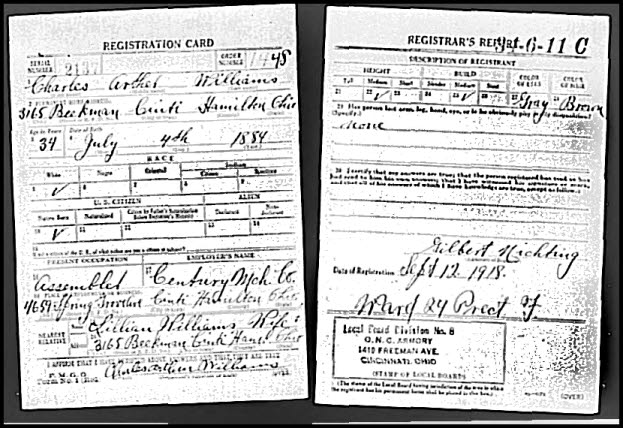 REGISTRATION CARD
SERIAL NUMBER 2137
ORDER NUMBER
Charles Arthel Williams
3165 Beckman Cinti Hamilton Ohio
Age in Years
Date of Birth
34 July 4th 1884
RACE
White Negro Oriental
Citizen
U. S. CITIZEN ALIEN
Native Born Naturalized Citizen by Father's Naturalization Before Registrant's Majority Declarant Non-declarant
PRESENT OCCUPATION EMPLOYER'S NAME
Assembler Century Mch Co.
4654 Cinti Hamilton Ohio
NEAREST RELATIVE
Lillian Williams Wife
3165 Beekman Cinti Ham Ohio
I AFFIRM THAT I HAVE VERIFIED ABOVE ANSWERS AND THAT THEY ARE TRUE
P. M. G. O.
Form No. 1 (Red)
Williams
REGISTRAR'S REPORT
DESCRIPTION OF REGISTRANT
HEIGHT BUILD COLOR OF EYES COLOR OF HAIR
Tall Medium Short Slender Medium Stout
21 22 23 24 25 26 27 Gray Brown
29 Has person lost arm, leg, hand, eye, or is he obviously physically disqualified?
(Specify.)
None
30 I certify that my answers are true; that the person registered has read or has had read to him his own answers; that I have witnessed his signature or mark, and that all of his answers of which I have knowledge are true, except as follows:
Gilbert Nichting
Date of Registration Sept 12 1918.
Ward 24 Prect
Local Board Division No. 8
O. N. G. ARMORY
1410 FREEMAN AVE.
CINCINNATI, OHIO
(STAMP OF LOCAL BOARD)
(The stamp of the Local Board having jurisdiction of the area in which the registrant has his permanent home shall be placed in this box.)
(OVER)